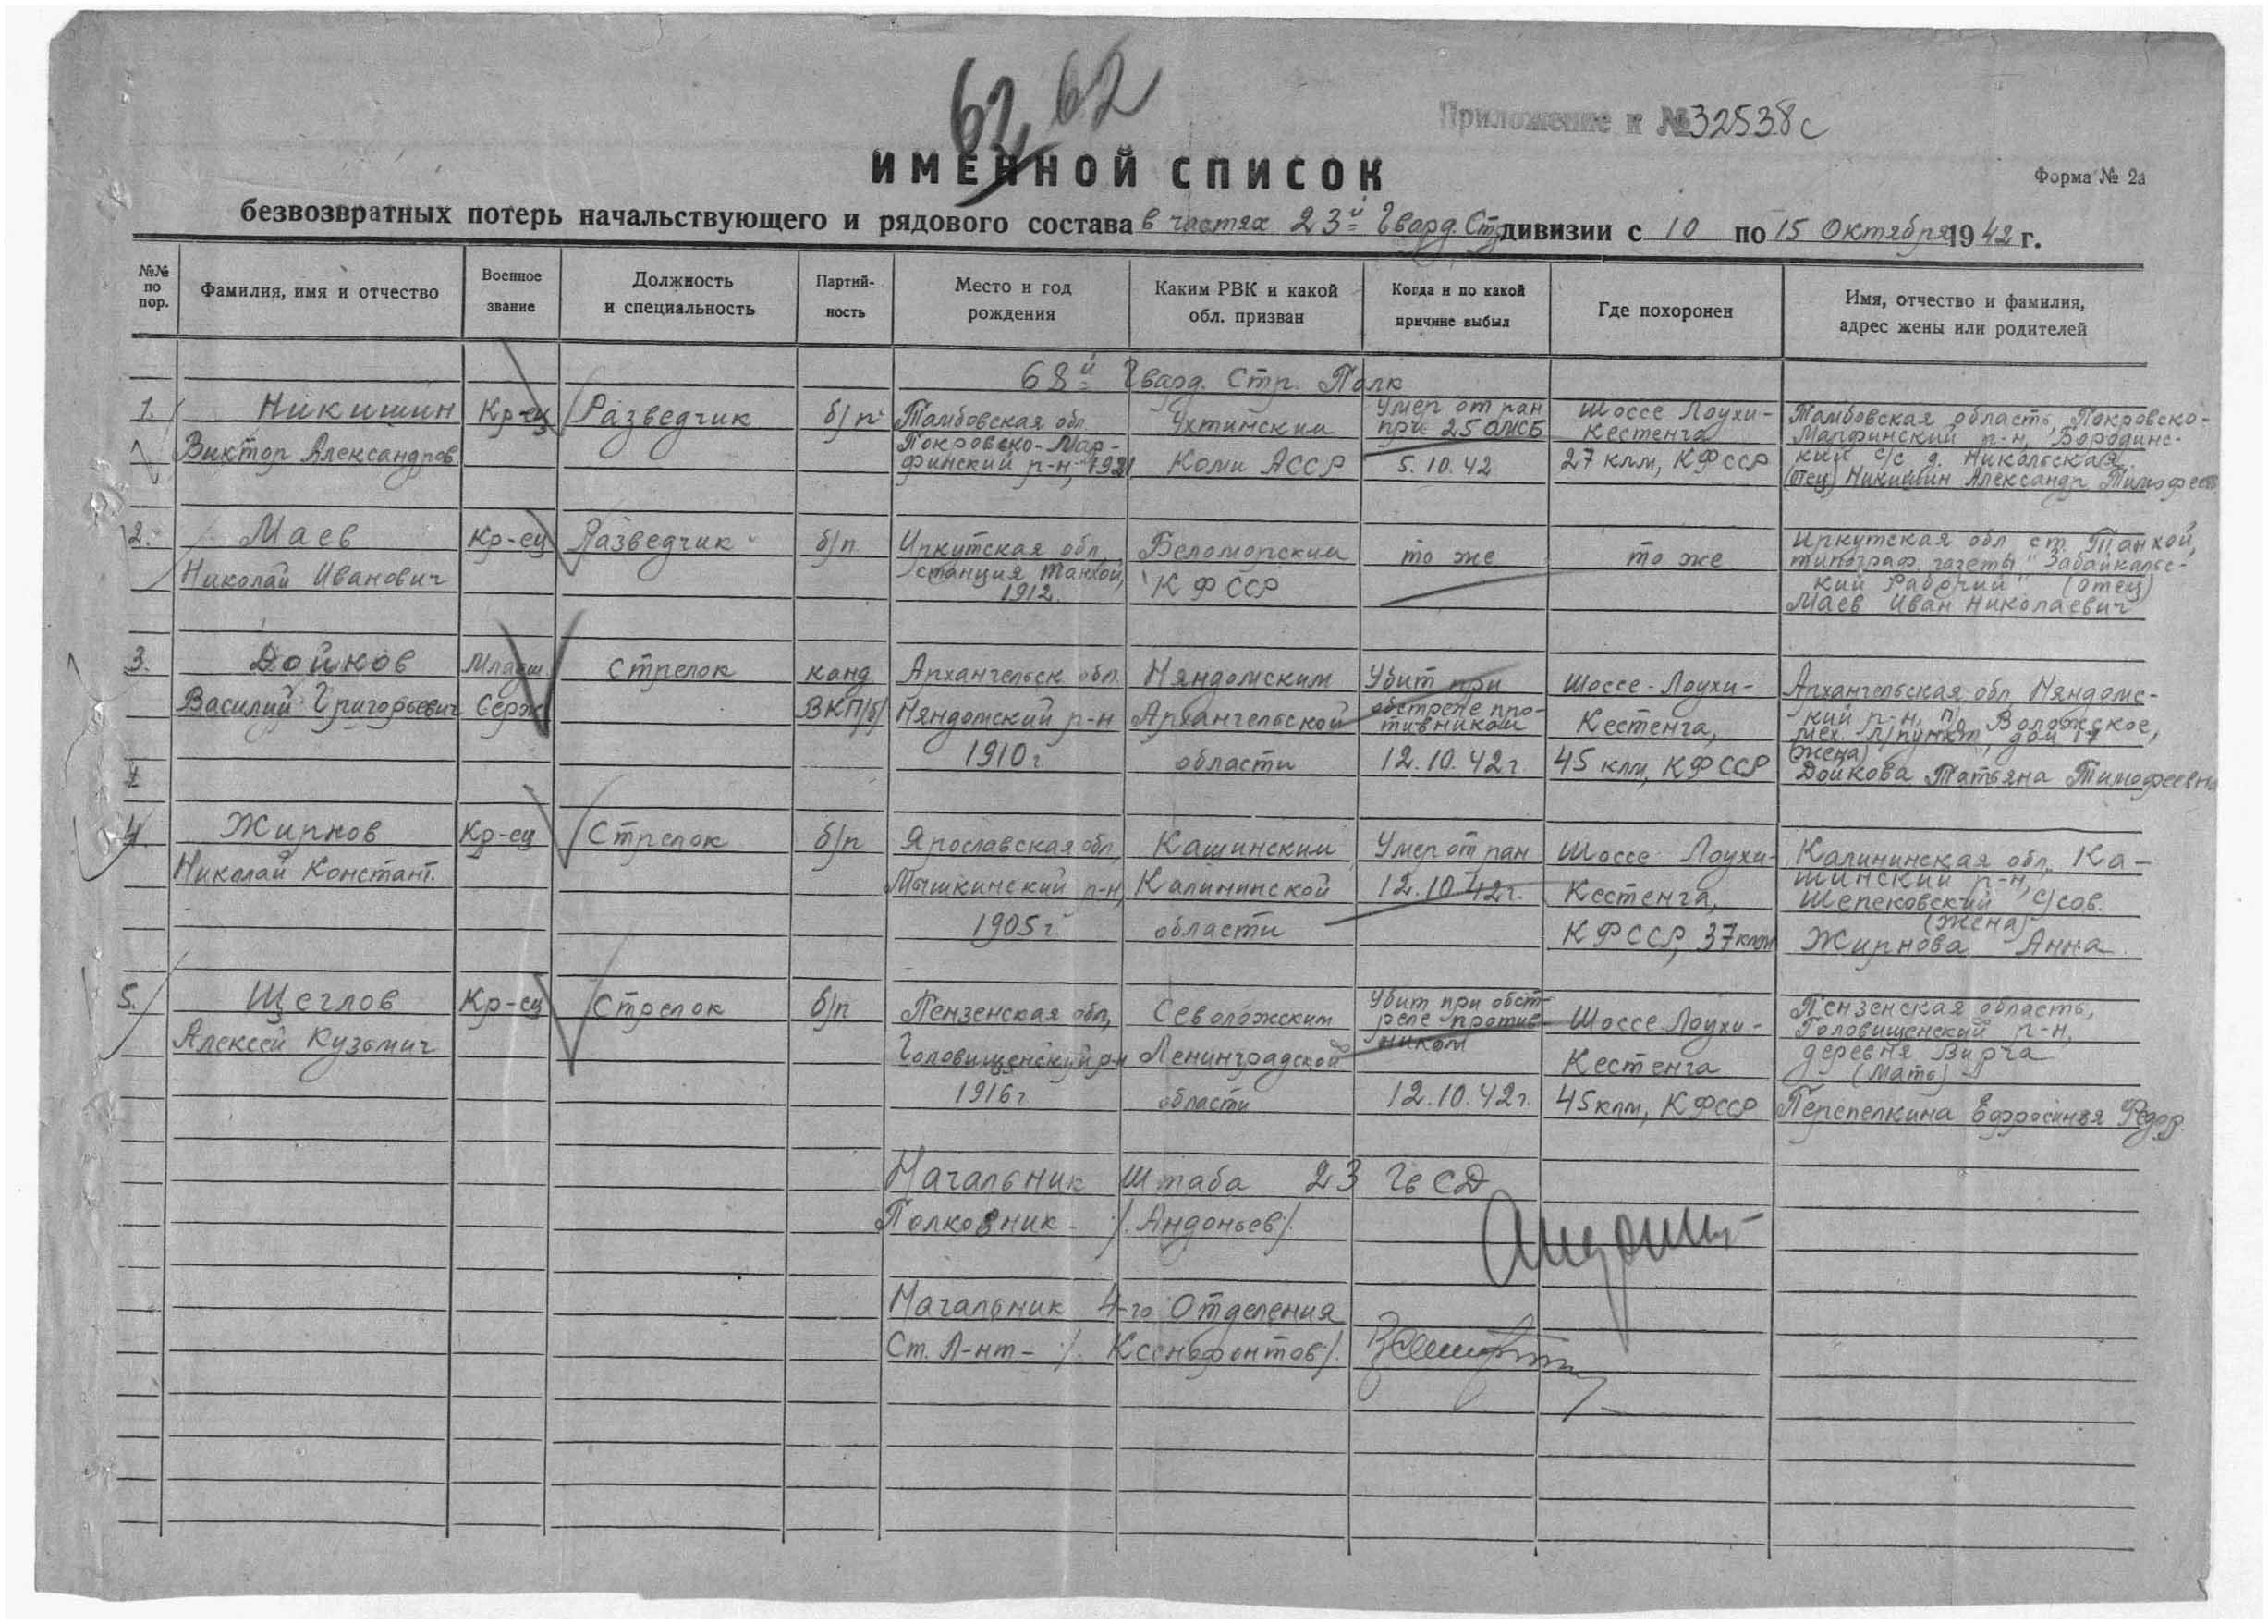 62 62
Приложение к № 32538с
ИМЕННОЙ СПИСОК
Форма № 2а
безвозвратных потерь начальствующего и рядового состава в частях 23й Гвард. Стр. дивизии с 10 по 15 Октября 1942 г.
№№ по пор.
Фамилия, имя и отчество
Военное звание
Должность и специальность
Партий-ность
Место и год рождения
Каким РВК и какой обл. призван
Когда и по какой причине выбыл
Где похоронен
Имя, отчество и фамилия, адрес жены или родителей
68й Гвард. Стр. Полк
1.
Никишин
Виктор Александров
Кр-ец
Разведчик
б/п
Тамбовская обл.
Покровско-Мар-
финский р-н, 1921
Ухтинским
Коми АССР
Умер от ран
при 25 ОМСБ
5.10.42
Шоссе Лоухи-
Кестенга
27 клм, КФССР
Тамбовская область, Покровско-
Марфинский р-н, Бородинс-
кий с/с д. Никольская
(отец) Никишин Александр Тимофеев
2.
Маев
Николай Иванович
Кр-ец
Разведчик
б/п
Иркутская обл,
станция Танхой,
1912.
Беломорским
КФССР
то же
то же
Иркутская обл ст. Танхой,
типограф. газеты "Забайкальс-
кий Рабочий" (отец)
Маев Иван Николаевич
3.
Дойков
Василий Григорьевич
Младш.
Серж
Стрелок
канд
ВКП/б/
Архангельск обл.
Няндомский р-н
1910г
Няндомским
Архангельской
области
Убит при
обстреле про-
тивником
12.10.42г.
Шоссе-Лоухи-
Кестенга,
45 клм, КФССР
Архангельская обл, Няндомс-
кий р-н, п/о Воложское,
мех. л/пункт, дом 17
(жена)
Дойкова Татьяна Тимофеевна
4.
Жирнов
Николай Констант.
Кр-ец
Стрелок
б/п
Ярославская обл,
Мышкинский р-н,
1905г.
Кашинским
Калининской
области
Умер от ран
12.10.42г.
Шоссе Лоухи-
Кестенга,
КФССР, 37 клм
Калининская обл, Ка-
шинский р-н,
Шепековский с/сов.
(Жена)
Жирнова Анна
5.
Щеглов
Алексей Кузьмич
Кр-ец
Стрелок
б/п
Пензенская обл,
Головищенский р-н
1916г
Севоложским
Ленинградской
области
Убит при обст-
реле против-
ником
12.10.42г.
Шоссе Лоухи-
Кестенга
45 клм, КФССР
Пензенская область,
Головищенский р-н,
деревня Вирга
(Мать)
Перепелкина Ефросинья Федор.
Начальник Штаба 23 Гв СД
Полковник- /. Андоньев/.
Начальник 4-го Отделения
Ст. Л-нт- /. Ксенофонтов/.